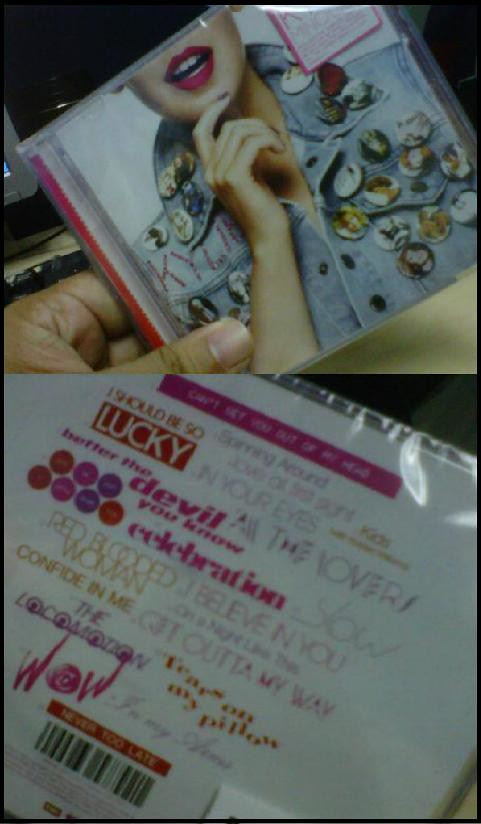 KYLIE
CAN'T GET YOU OUT OF MY HEAD
I SHOULD BE SO
LUCKY
Spinning Around
love at first sight
IN YOUR EYES
Kids
better the
devil
you know
ALL THE LOVERS
celebration
Slow
RED BLOODED
WOMAN
I BELIEVE IN YOU
CONFIDE IN ME
On a Night Like This
GET OUTTA MY WAY
THE
LOCOMOTION
WOW
Tears on
my pillow
In my Arms
NEVER TOO LATE